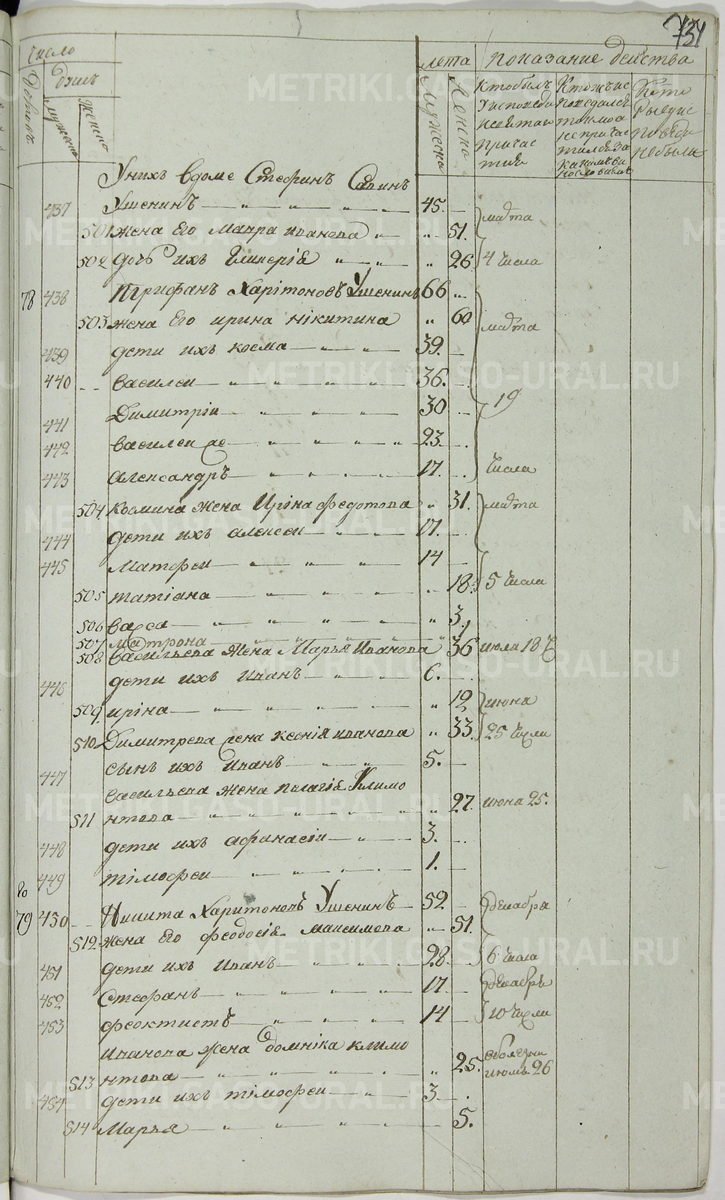 734
число
лета показание действа
домовъ
мужеска
женска
мужеска
женска
Кто былъ
у исповеди
и святаго
причас
тия
Кто жъ ис
поведался
токмо а
не причас
тился за
какимъ ви
нословиемъ
Кто
у исповеди
не были
Унихъ вдоме Стефанъ Савинъ
437 Ушенинъ 45. марта
501 жена Его Мавра иванова 51.
502 дочь ихъ Гликерiя 26 4 числа
78 438 Трифанъ Харiтоновъ Ушенинъ 66
503 жена Его ирина нiкитина 60 марта
439 дети ихъ косма 39.
440 василеи 36.
441 Димитрiи 30 19
442 василеи же 23
443 александръ 17. числа
504 космина жена Ирiна федотова 31. марта
444 дети ихъ алексеи 17.
445 Матфеи 14
505 татiана 18. 5 числа
506 васса 3.
507 матрона
508 васильева жена Марья Иванова 36 июля 18 ч
446 дети ихъ иванъ 6.
509 ирiна 12 июня
510 Димитрева жена ксенiя иванова 33. 25 числа
447 сынъ ихъ иванъ 5.
васильева жена пелагiя Климо
511 нтова 27. июня 25.
448 дети ихъ афанасiи 3.
449 тiмофеи 1.
79 450 Никита Харитоновъ Ушенинъ 52. декабря
512 жена Его феодосiя максимова 51.
451 дети ихъ Иванъ 28. 6 числа
452 Стефанъ 17 декабря
453 феоктистъ 14 10 числа
Иванова жена домнiка климо
513 нтова 25. июня 26
454 дети ихъ тiмофеи 3.
514 Марья 5.
METRIKI.GASO-URAL.RU